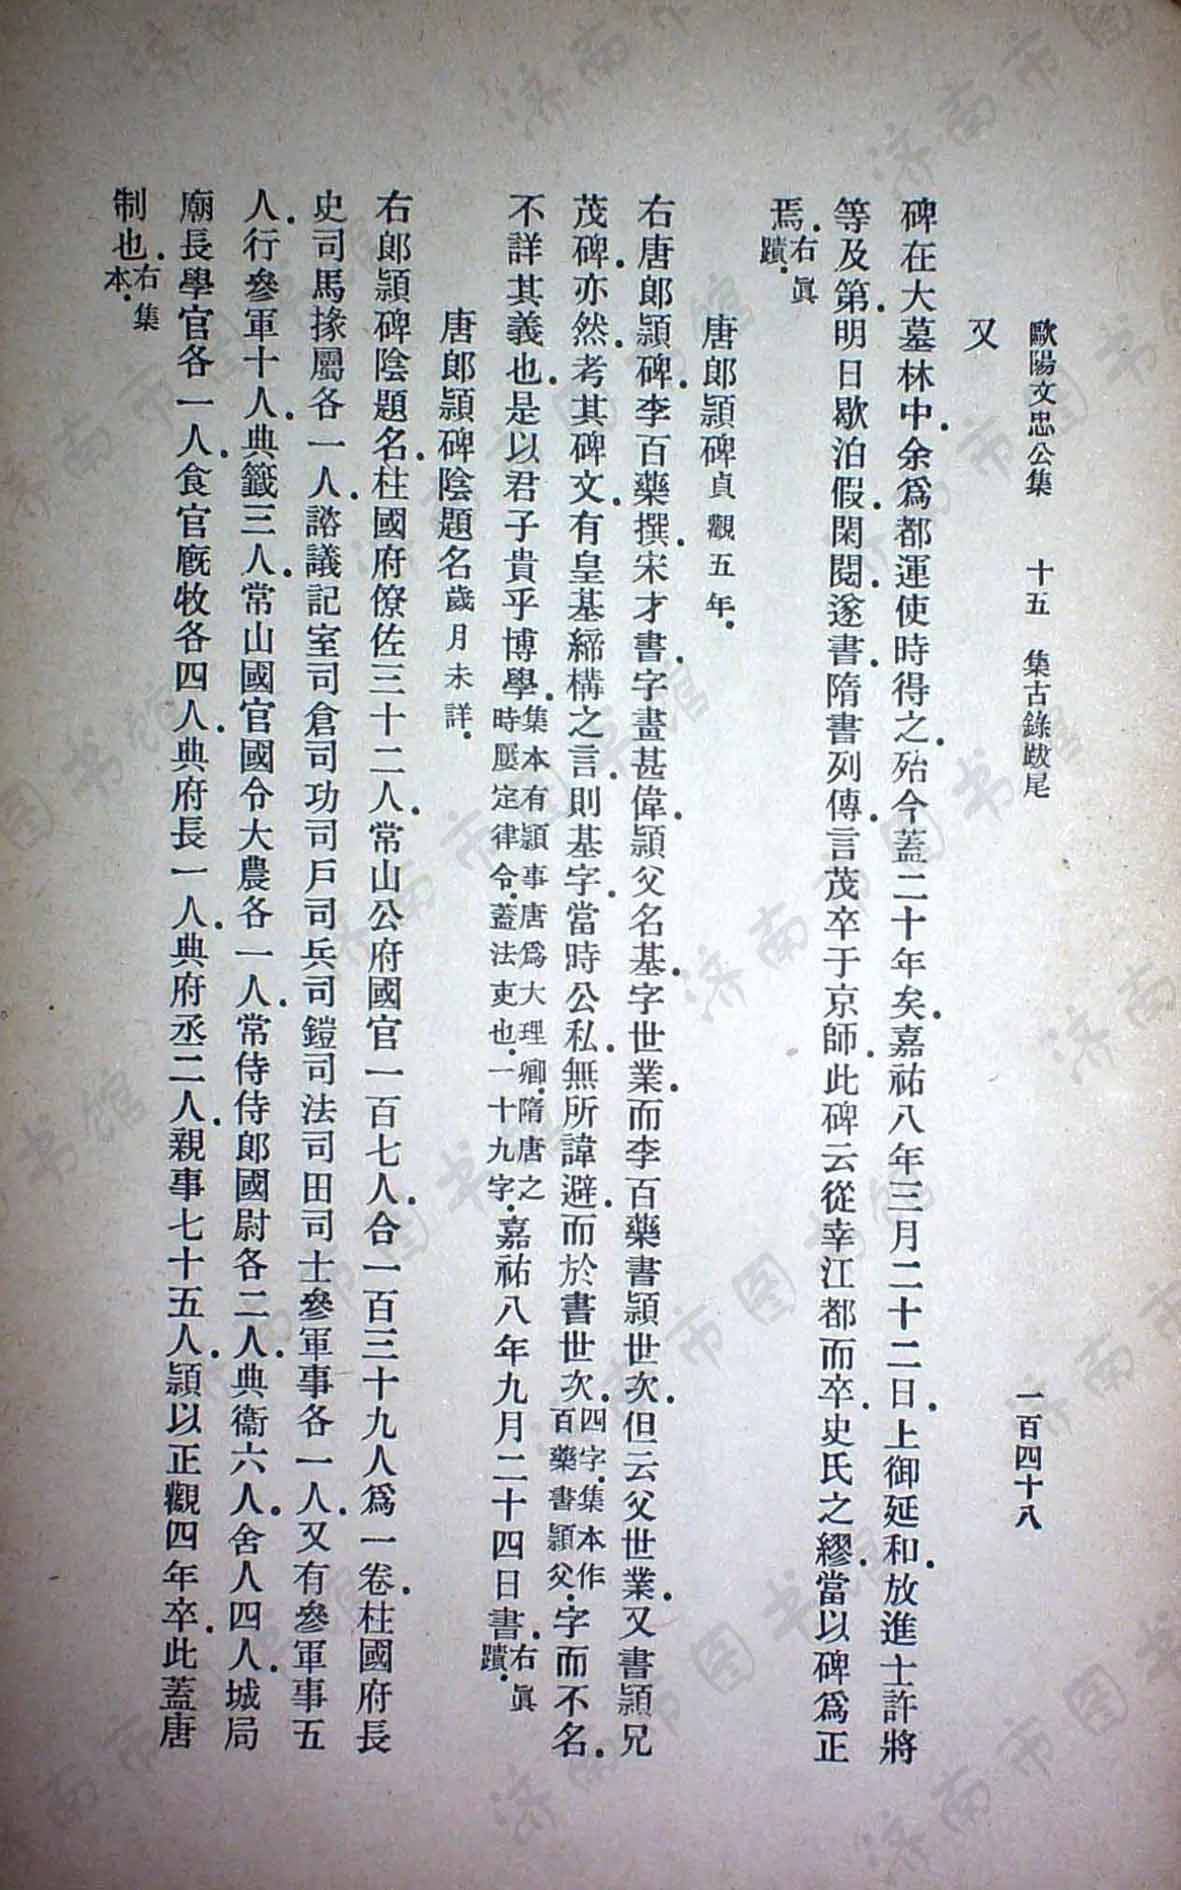 歐陽文忠公集　十五　集古錄跋尾　一百四十八
又
碑在大墓林中．余爲都運使時得之．殆今蓋二十年矣．嘉祐八年三月二十二日．上御延和．放進士許將
等及第．明日歇泊假．閑閱．遂書．隋書列傳．言茂卒于京師．此碑云從幸江都而卒．史氏之繆．當以碑爲正
焉．右眞蹟．
唐郎頴碑貞觀五年．
右唐郎頴碑．李百藥撰．宋才書．字畫甚偉．頴父名基．字世業．而李百藥書頴世次．但云父世業．又書頴兄
茂碑．亦然．考其碑文．有皇基締構之言．則基字．當時公私．無所諱避．而於書世次．四字．集本作百藥書頴父．字而不名．
不詳其義也．是以君子貴乎博學．集本有頴事唐爲大理卿．隋唐之時屢定律令．蓋法吏也．一十九字．嘉祐八年九月二十四日書．右眞蹟．
唐郎頴碑陰題名歲月未詳．
右郎頴碑陰題名．柱國府僚佐三十二人．常山公府國官一百七人．合一百三十九人爲一卷．柱國府長
史司馬掾屬各一人．諮議記室司倉司功司戶司兵司鎧司法司田司士參軍事各一人．又有參軍事五
人．行參軍十人．典籤三人．常山國官國令大農各一人．常侍侍郎國尉各二人．典衞六人．舍人四人．城局
廟長學官各一人．食官廐牧各四人．典府長一人．典府丞二人．親事七十五人．頴以正觀四年卒．此蓋唐
制也．右集本．